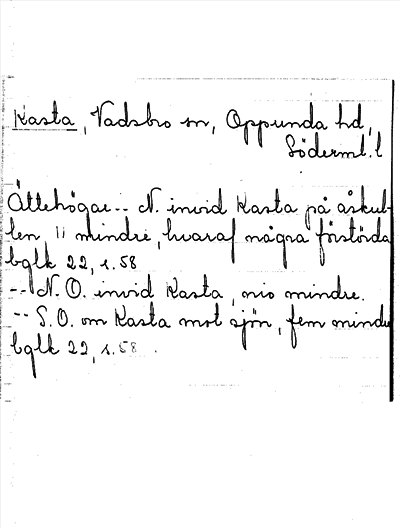 Kasta, Vadsbro sn, Oppunda hd,
Söderml. l
Ättehögar -- N. invid Kasta på åskul-
len 11 mindre, hvaraf några förstörda
bglk 22, s. 58
-- N. O. invid Kasta, nio mindre.
-- S. O. om Kasta mot sjön, fem mindre
bglk 22, s. 58.